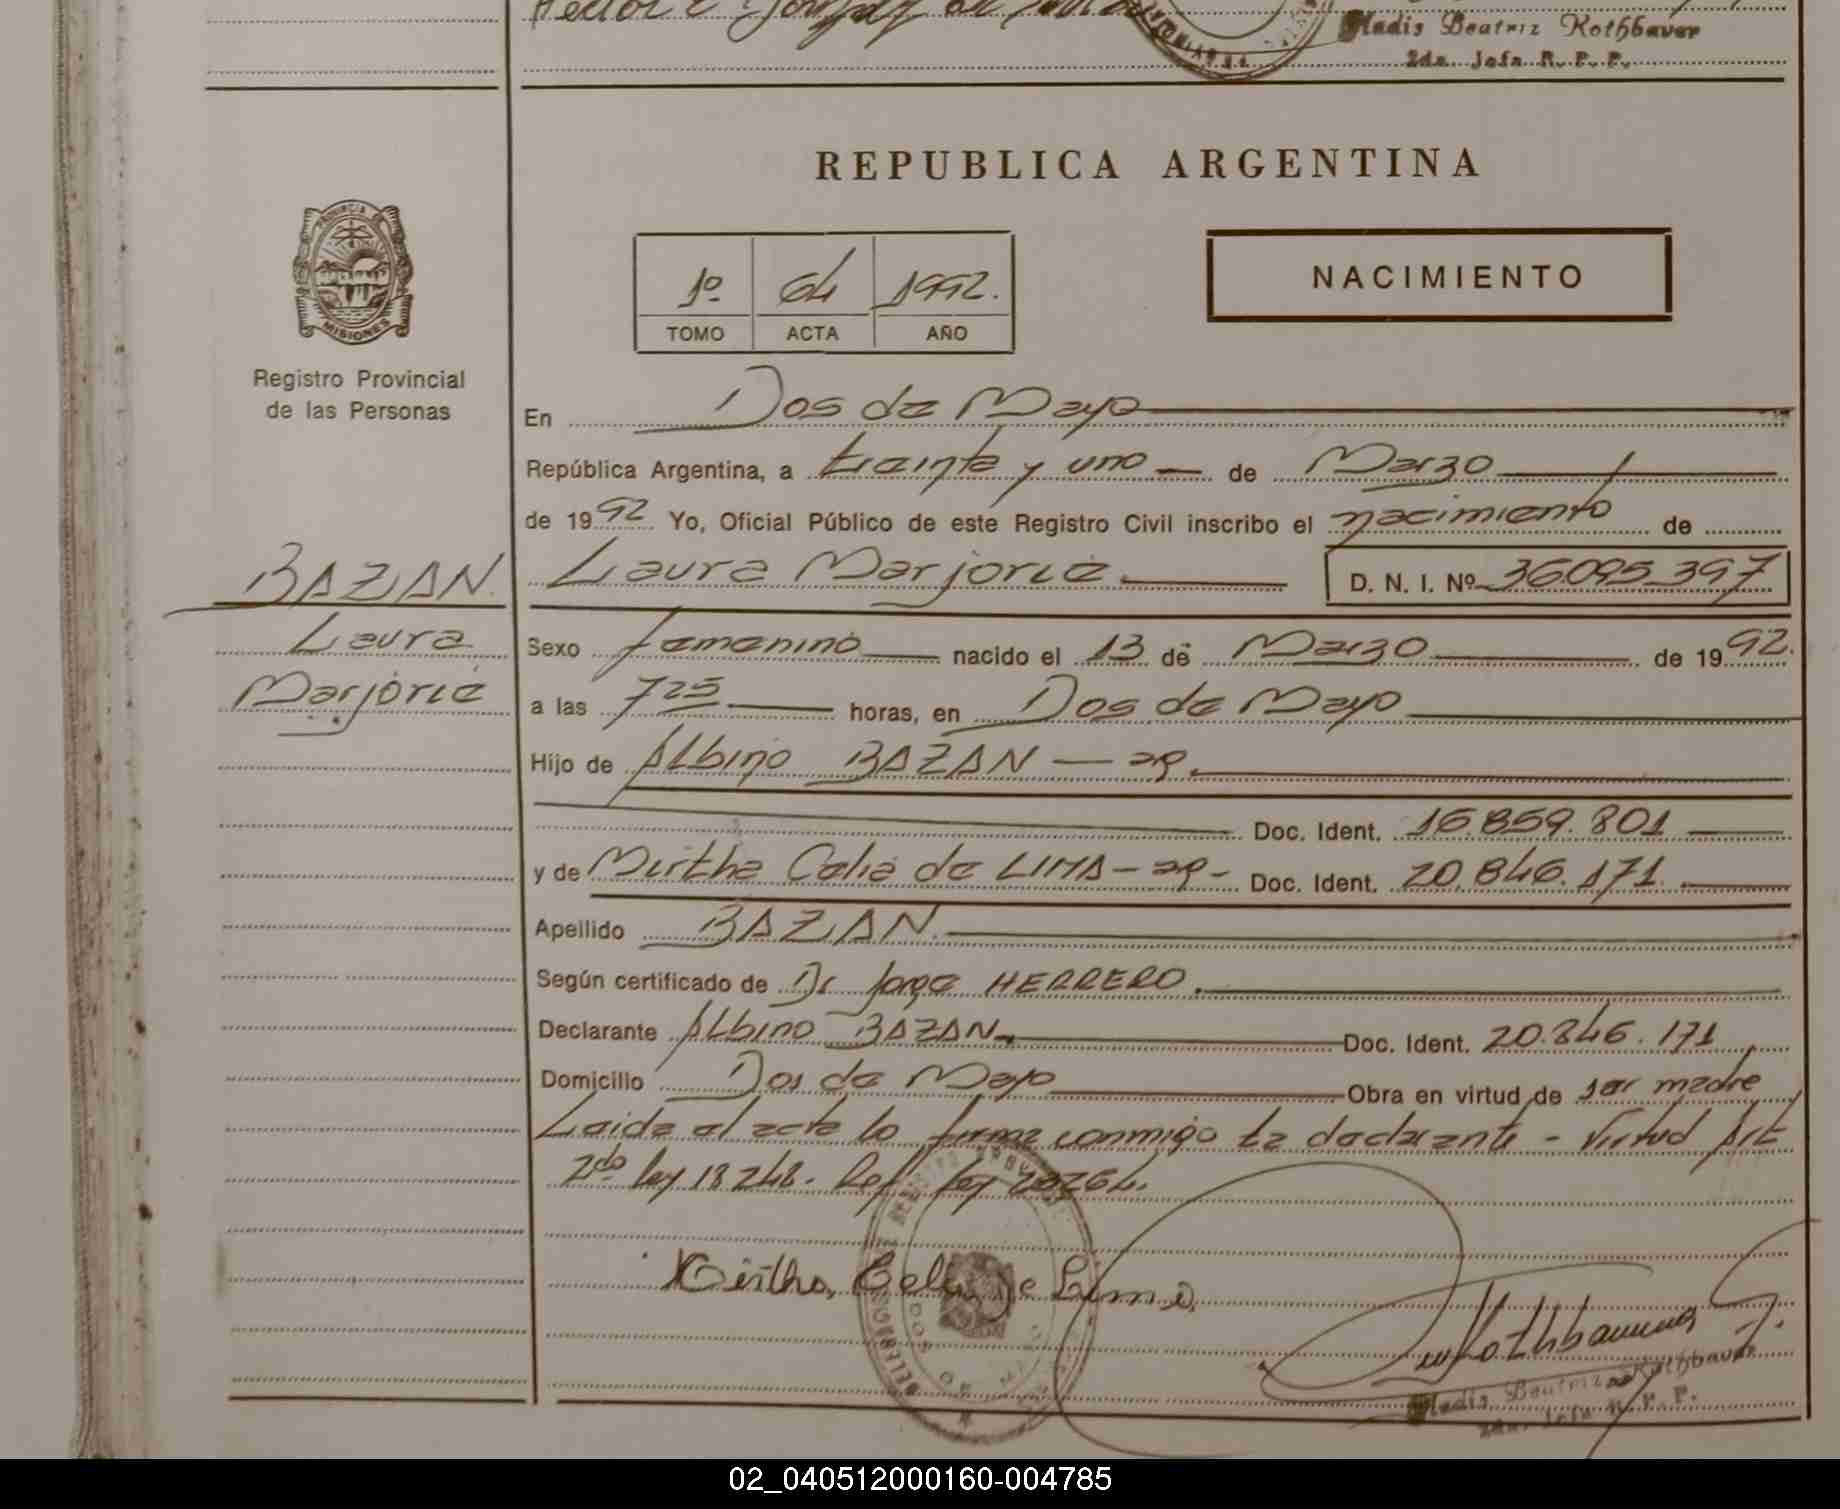 Gladis Beatriz Rothbauer
2da. Jefa R. P. P.
REPUBLICA ARGENTINA
PROVINCIA DE
MISIONES
Registro Provincial
de las Personas
1º 64 1992.
TOMO ACTA AÑO
NACIMIENTO
En Dos de Mayo
República Argentina, a treinta y uno de Marzo
de 1992 Yo, Oficial Público de este Registro Civil inscribo el nacimiento de
BAZAN Laura Marjorie D. N. I. Nº 36.095.397
Laura Sexo femenino nacido el 13 de Marzo de 1992.
Marjorie a las 7 25 horas, en Dos de Mayo
Hijo de Albino BAZAN - ar.
Doc. Ident. 16.859.801
y de Mirtha Celia de LIMA - ar - Doc. Ident. 20.846.171.
Apellido BAZAN
Según certificado de Dr Jorge HERRERO.
Declarante Albino BAZAN Doc. Ident. 20.846.171
Domicilio Dos de Mayo Obra en virtud de ser madre
Leida el acta lo firma conmigo la declarante - Virtud Art
2do ley 18248. Ref. ley 20264.
Mirtha, Celia de Lima
Rothbauer G.
Gladis Beatriz Rothbauer
2da. Jefa R. P. P.
02_040512000160-004785